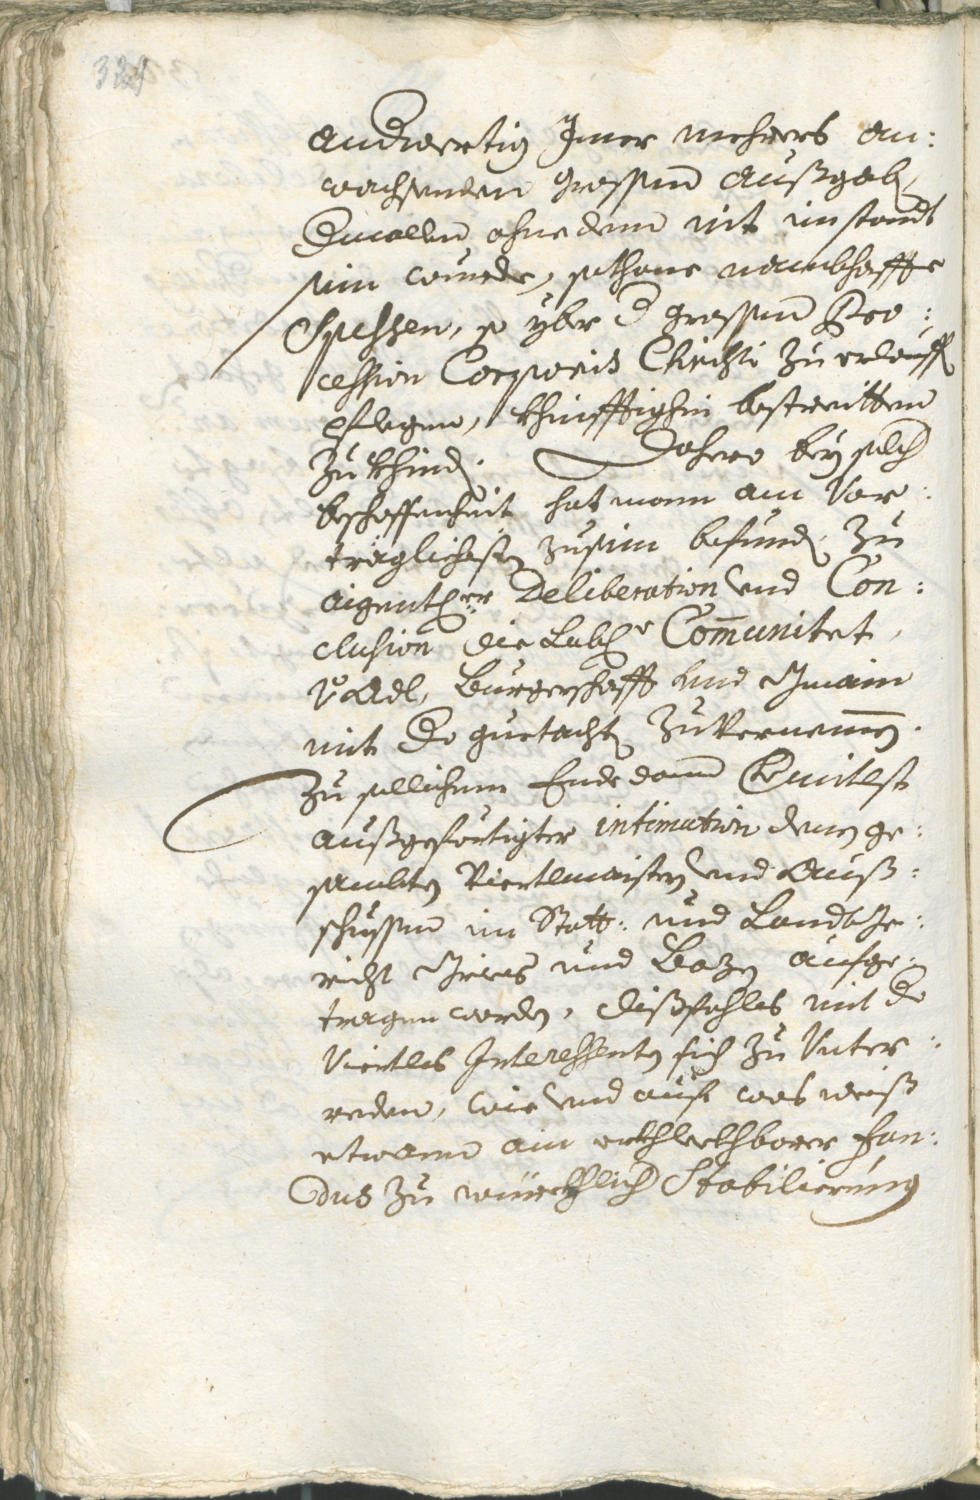 324
anderwertig Jmer mehrers an:
wachsenden grossen Außgab,
Diecallen ohne deme nit im standt
sein wurde, sothane nambhaffte
Spesen, so yber d grossen Pro:
cession Corporis Christi zuerlauffen
pflegen, khinfftighin bestreitten
zu khinden. Dahero bey solch
beschaffenheit hat mann am Vor:
träglichisten zusein befunden, zu
aigentlicher Deliberation und Con:
clusion die Lobl: Com̅unitet,
v: Adl, Burgerschafft und Gmain
mit Dero guetachten zuvernemen.
Zu sollichem Ende dann Vermitlst
außgefertigter intimation denen ge:
sambten Viertlmaistern und Auß:
schussen im Statt: und Landtge:
richt Gries und Bozen aufge:
tragen worden, dißfahls mit den
Viertls Interessenten sich zu Unter:
reden, wie und auf was weiß
etwann ain erkhlekhlicher Fun:
dus zu würckhlicher Stabilierung